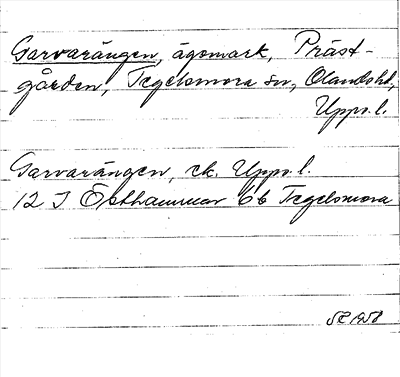 Garvarängen, ägomark, Präst-
gården, Tegelsmora sn, Olandshd,
Upps. l.
Garvarängen, ek. Upps. l.
12 I Östhammar 6b Tegelsmora
1958